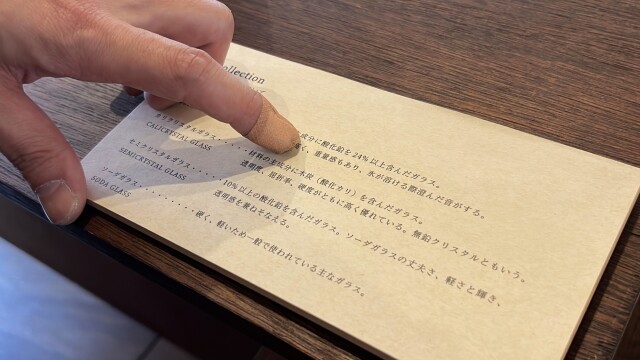 ollection
成分に酸化鉛を24%以上含んだガラス。
く、重量感もあり、氷が溶ける際澄んだ音がする。
カリクリスタルガラス・・・・・・材料の主成分に木炭(酸化カリ)を含んだガラス。
CALICRYSTAL GLASS
透明度、屈折率、硬度がともに高く優れている。無鉛クリスタルともいう。
セミクリスタルガラス・・・・・・10%以上の酸化鉛を含んだガラス。ソーダガラスの丈夫さ、軽さと輝き、
SEMICRYSTAL GLASS
透明感を兼ねそなえる。
ソーダガラス・・・・・・・・・・硬く、軽いため一般で使われている主なガラス。
SODA GLASS